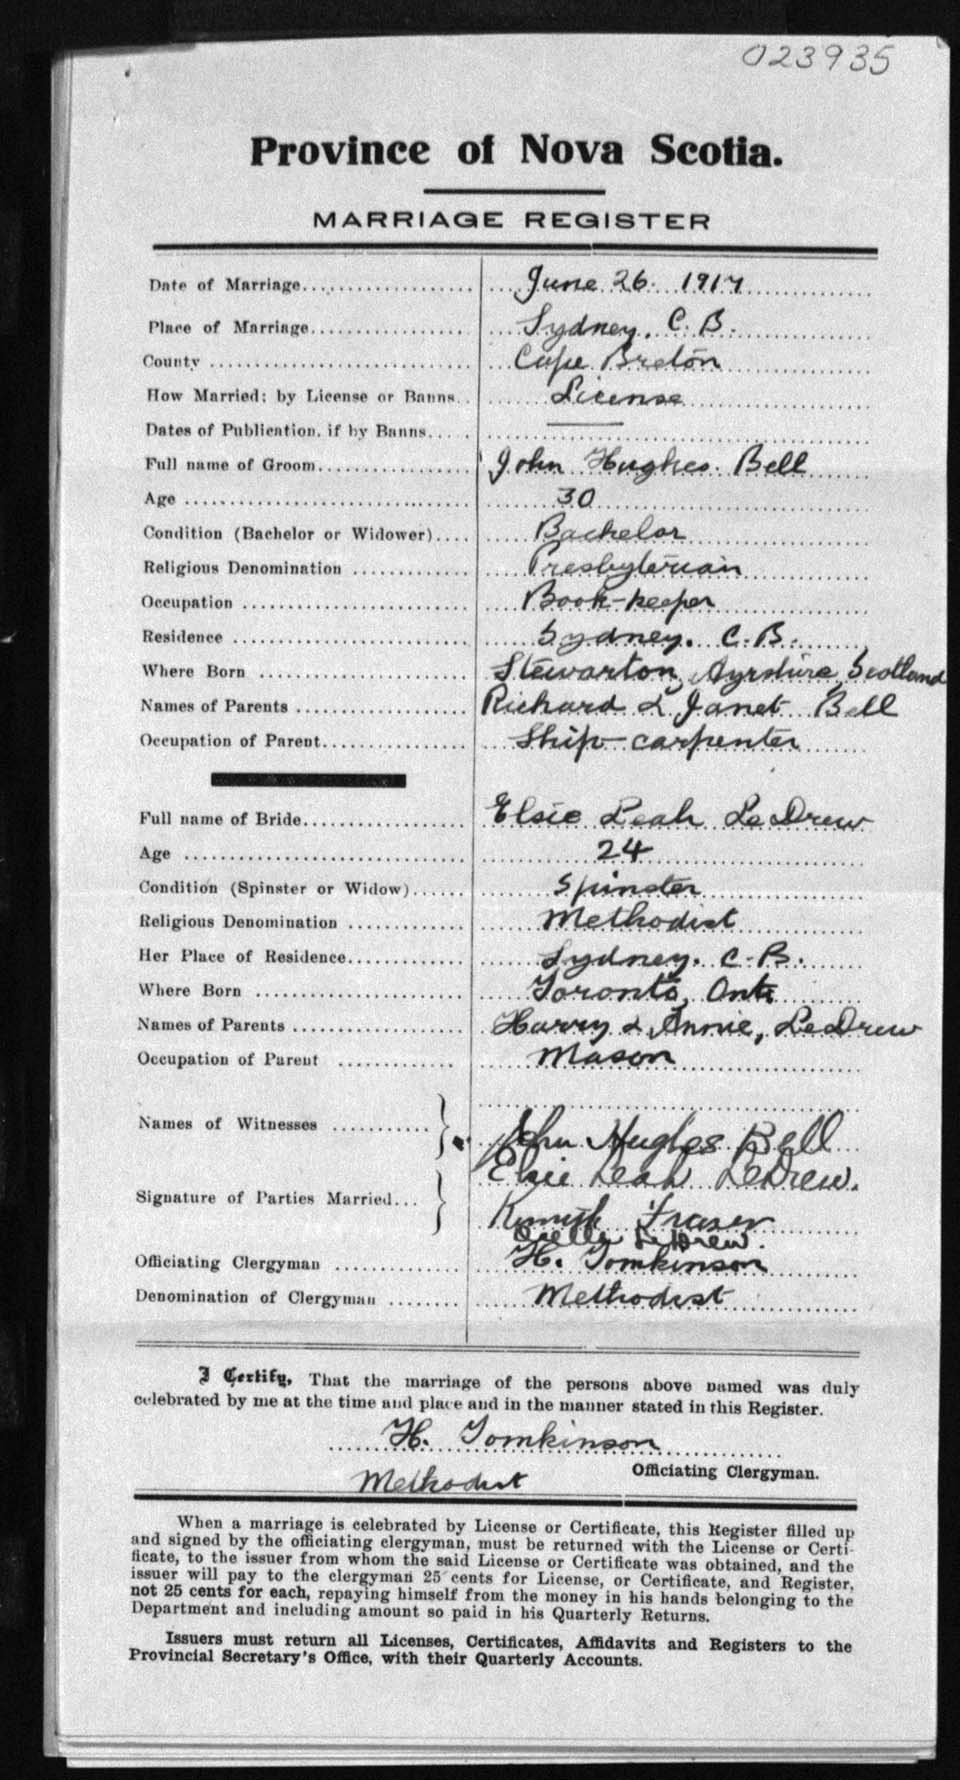 023935
Province of Nova Scotia.
MARRIAGE REGISTER
Date of Marriage June 26. 1917
Place of Marriage Sydney. C. B.
County Cape Breton
How Married: by License or Banns License
Dates of Publication, if by Banns
Full name of Groom John Hughes Bell
Age 30
Condition (Bachelor or Widower) Bachelor
Religious Denomination Presbyterian
Occupation Book-keeper
Residence Sydney. C. B.
Where Born Stewarton, Ayrshire Scotland
Names of Parents Richard & Janet Bell
Occupation of Parent Ship-carpenter
Full name of Bride Elsie Leah LeDrew
Age 24
Condition (Spinster or Widow) Spinster
Religious Denomination Methodist
Her Place of Residence Sydney. C. B.
Where Born Toronto, Ont.
Names of Parents Harry & Annie, LeDrew
Occupation of Parent Mason
Names of Witnesses John Hughes Bell
Elsie Leah LeDrew.
Signature of Parties Married Kenneth Fraser
LeDrew.
Officiating Clergyman H. Tomkinson
Denomination of Clergyman Methodist
I Certify, That the marriage of the persons above named was duly
celebrated by me at the time and place and in the manner stated in this Register.
H. Tomkinson
Officiating Clergyman.
Methodist
When a marriage is celebrated by License or Certificate, this Register filled up
and signed by the officiating clergyman, must be returned with the License or Certi-
ficate, to the issuer from whom the said License or Certificate was obtained, and the
issuer will pay to the clergyman 25 cents for License, or Certificate, and Register,
not 25 cents for each, repaying himself from the money in his hands belonging to the
Department and including amount so paid in his Quarterly Returns.
Issuers must return all Licenses, Certificates, Affidavits and Registers to the
Provincial Secretary's Office, with their Quarterly Accounts.